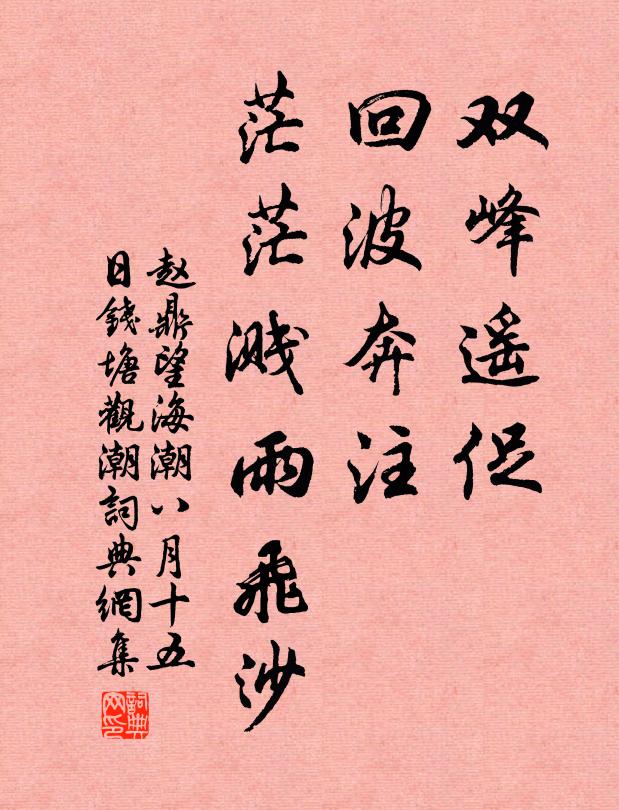 双峰遥促
回波奔注
茫茫溅雨飛沙
赵鼎望海潮八月十五
日錢塘觀潮詞典網集
詞典网印